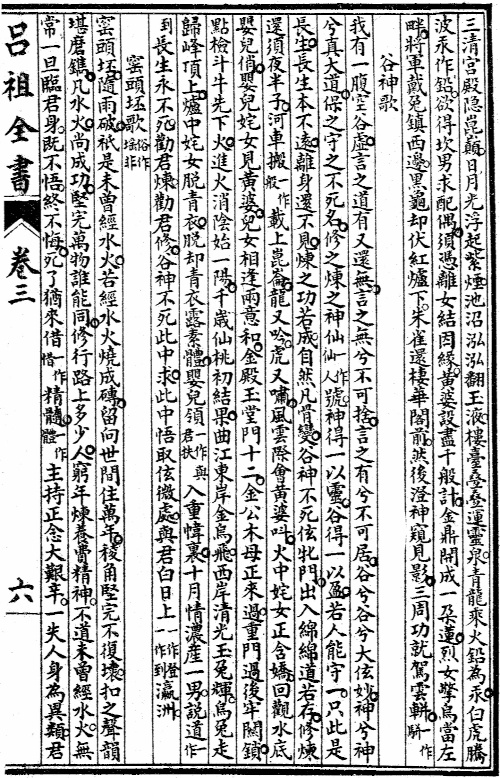 三清宮殿隠崑巔日月光浮起紫煙池沼泓泓翻玉液樓臺疊疊運靈泉青龍乘火鉛為汞白虎騰
波汞作鉛欲得坎男求配偶須憑離女結因緣黃婆設盡千般計金鼎開成一朶蓮烈女擎烏當左
畔將軍戴兎鎮西邊黑龜却伏紅爐下朱雀還棲華閣前然後澄神窺見影三周功就駕雲軿一作駢
谷神歌
我有一腹空谷虛言之道有又還無言之無兮不可捨言之有兮不可居谷兮谷兮大弦妙神兮神
兮真大道保之守之不死名修之煉之神仙一作仙人號神得一以靈谷得一以盈若人能守一只此是
長生長生本不遠離身還不見煉之功若成自然凡骨變谷神不死弦牝門出入綿綿道若存修煉
還須夜半子河車搬一作般載上崑崙龍又吟虎又嘯風雲際會黃婆叫火中姹女正含嬌回觀水底
嬰兒俏嬰兒姹女見黃婆兒女相逢兩意和金殿玉堂門十二金公木母正來過重門過後牢關鎖
點檢斗牛先下火進火消陰始一陽千歲仙桃初結果曲江東岸金烏飛西岸清光玉兎輝烏兎走
歸峰頂上爐中姹女脫青衣脫却青衣露素體嬰兒領一作與君扶入重幃裏十月情濃産一男說道一作
到長生永不死勸君煉勸君修谷神不死此中求此中悟取弦微處與君白日上一作登一作到瀛洲
窰頭坯歌俗作瑤非
窰頭坯隨雨破秖是未曾經水火若經水火燒成磚留向世間住萬年稜角堅完不復壞扣之聲韻
堪磨鐫凡水火尚成功堅完萬物誰能同修行路上多少人窮年煉養費精神不道未曾經水火無
常一旦臨君身既不悟終不悔死了猶來借一作惜精髓一作體主持正念大艱辛一失人身為異類君
呂祖全書
卷三
六